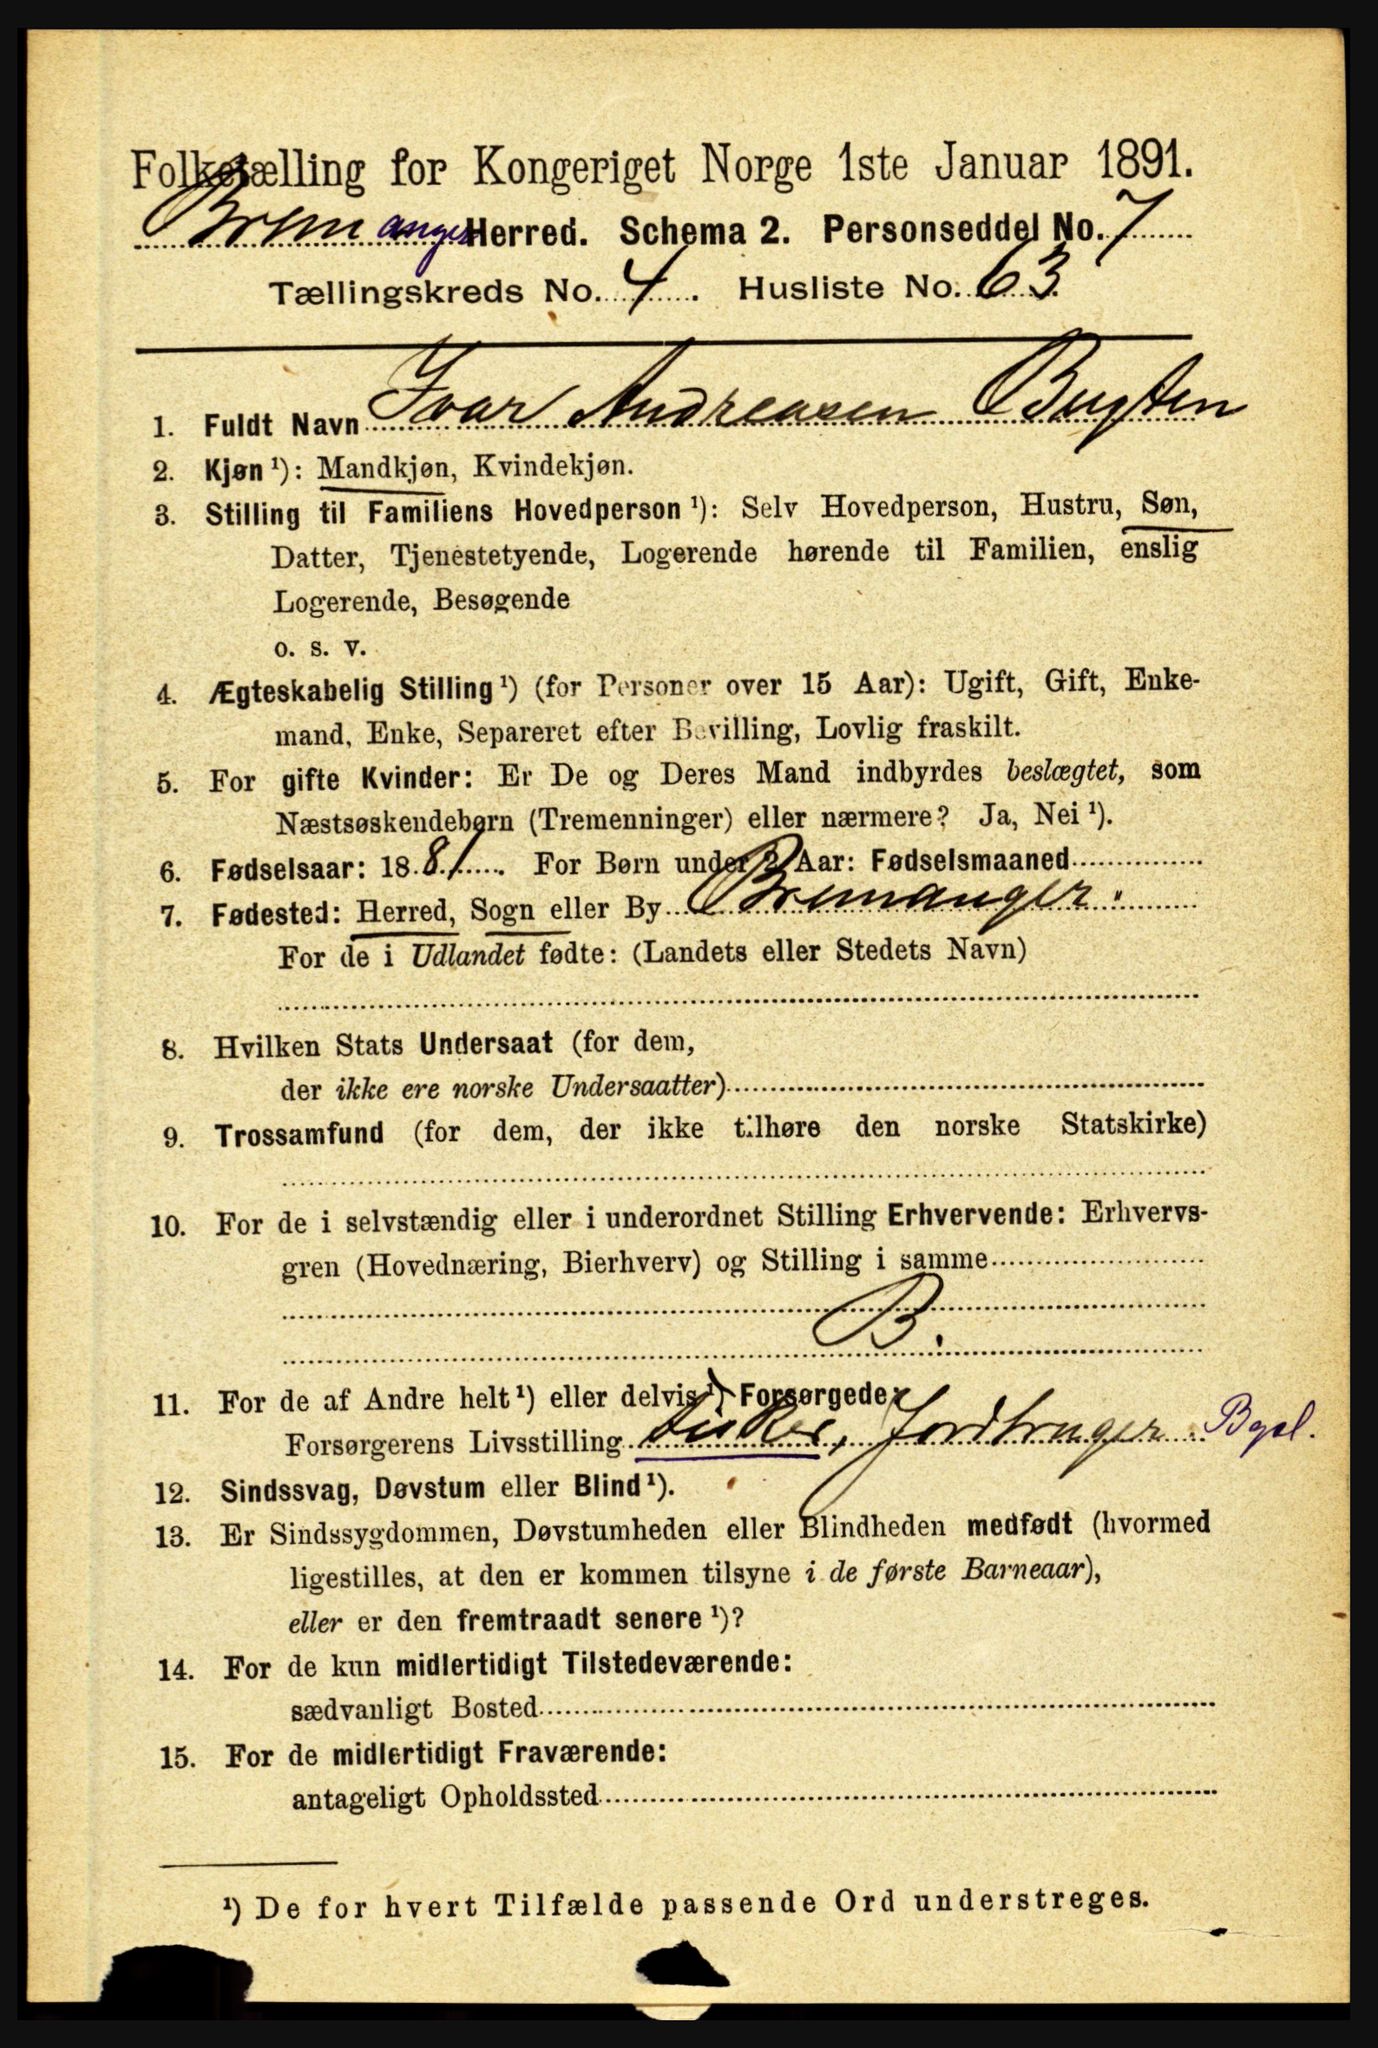 Folketælling for Kongeriget Norge 1ste Januar 1891.
Bremanger Herred. Schema 2. Personseddel No. 7
Tællingskreds No. 4. Husliste No. 63.
1. Fuldt Navn Ivar Andreasen Bugten
2. Kjøn ¹): Mandkjøn, Kvindekjøn.
3. Stilling til Familiens Hovedperson ¹): Selv Hovedperson, Hustru, Søn,
Datter, Tjenestetyende, Logerende hørende til Familien, enslig
Logerende, Besøgende
o. s. v.
4. Ægteskabelig Stilling ¹) (for Personer over 15 Aar): Ugift, Gift, Enke-
mand, Enke, Separeret efter Bevilling, Lovlig fraskilt.
5. For gifte Kvinder: Er De og Deres Mand indbyrdes beslægtet, som
Næstsøskendebørn (Tremenninger) eller nærmere? Ja, Nei ¹).
6. Fødselsaar: 1881. For Børn under 2 Aar: Fødselsmaaned
7. Fødested: Herred, Sogn eller By Bremanger.
For de i Udlandet fødte: (Landets eller Stedets Navn)
8. Hvilken Stats Undersaat (for dem,
der ikke ere norske Undersaatter)
9. Trossamfund (for dem, der ikke tilhøre den norske Statskirke)
10. For de i selvstændig eller i underordnet Stilling Erhvervende: Erhvervs-
gren (Hovednæring, Bierhverv) og Stilling i samme
B.
11. For de af Andre helt ¹) eller delvis ¹) Forsørgede:
Forsørgerens Livsstilling Fisker, Jordbruger. Bgsl.
12. Sindssvag, Døvstum eller Blind ¹).
13. Er Sindssygdommen, Døvstumheden eller Blindheden medfødt (hvormed
ligestilles, at den er kommen tilsyne i de første Barneaar),
eller er den fremtraadt senere ¹)?
14. For de kun midlertidigt Tilstedeværende:
sædvanligt Bosted
15. For de midlertidigt Fraværende:
antageligt Opholdssted
¹) De for hvert Tilfælde passende Ord understreges.